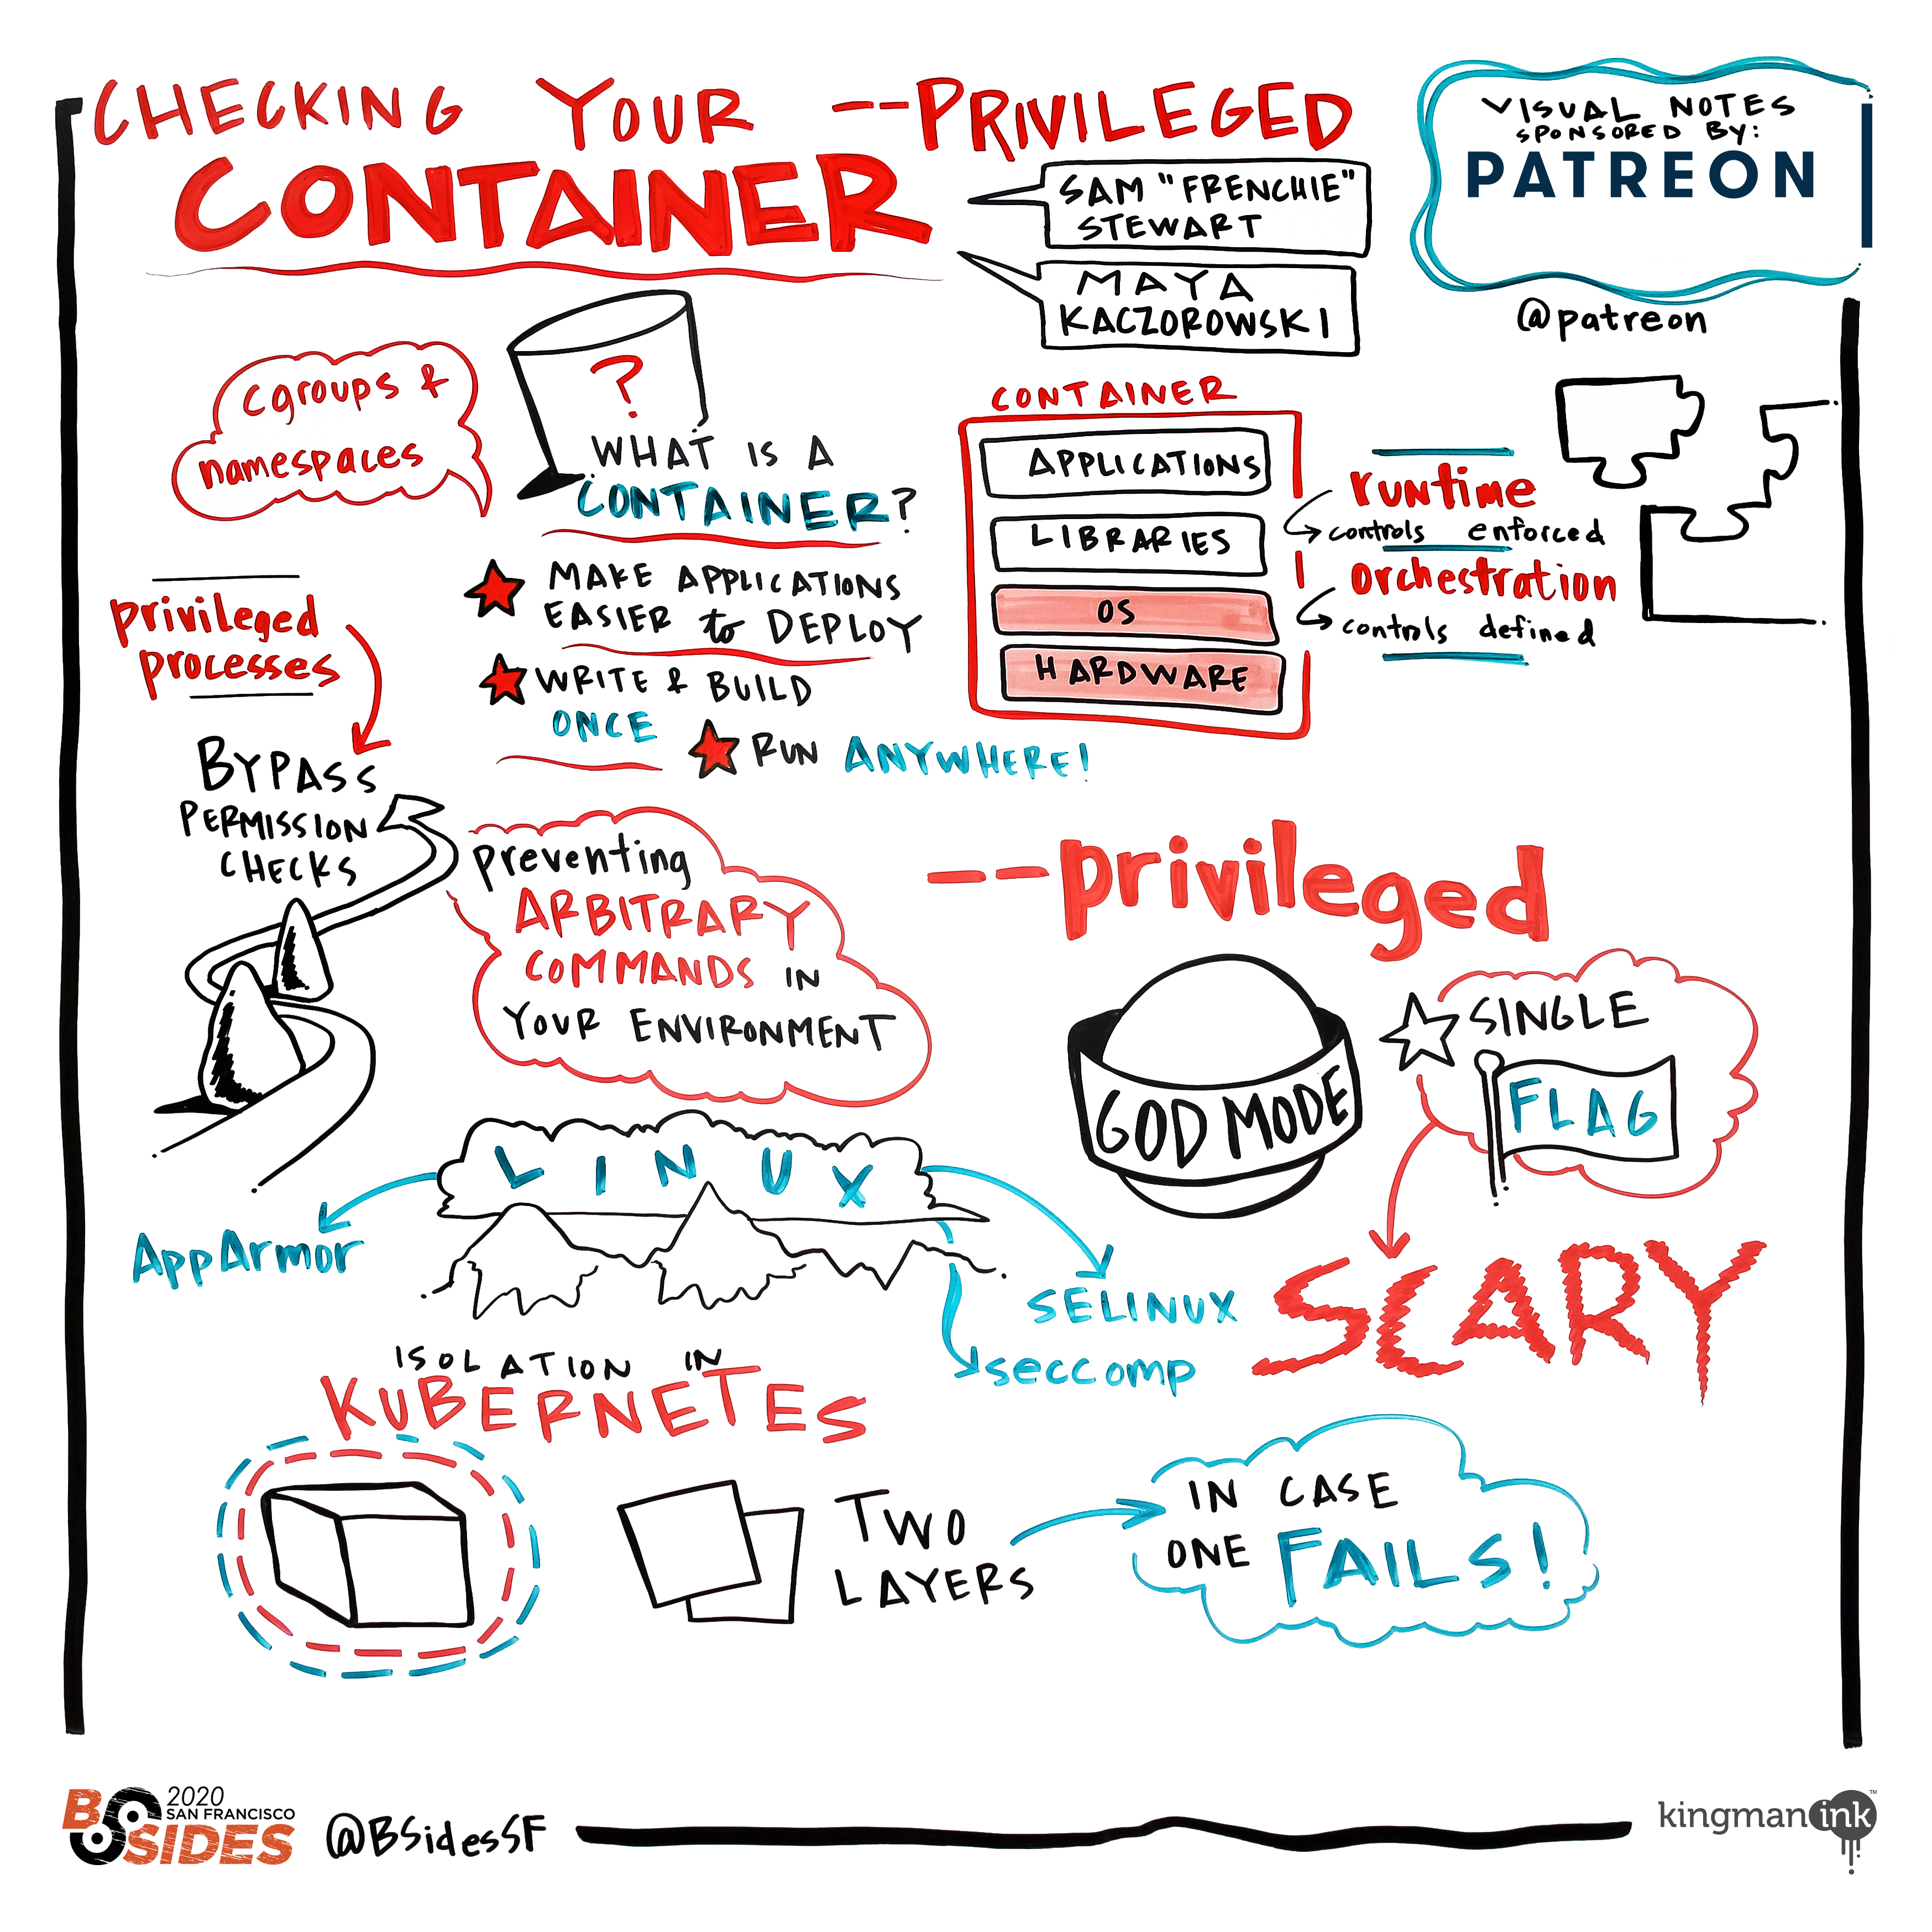 CHECKING YOUR --PRIVILEGED
CONTAINER
SAM "FRENCHIE"
STEWART
MAYA
KACZOROWSKI
VISUAL NOTES
SPONSORED BY:
PATREON
@patreon
cgroups &
namespaces
?
WHAT IS A
CONTAINER?
MAKE APPLICATIONS
EASIER to DEPLOY
WRITE & BUILD
ONCE
RUN ANYWHERE!
CONTAINER
APPLICATIONS
LIBRARIES
OS
HARDWARE
runtime
controls enforced
orchestration
controls defined
privileged
processes
BYPASS
PERMISSION
CHECKS
preventing
ARBITRARY
COMMANDS IN
YOUR ENVIRONMENT
--privileged
GOD MODE
SINGLE
FLAG
SCARY
LINUX
AppArmor
SELINUX
seccomp
ISOLATION IN
KUBERNETES
TWO
LAYERS
IN CASE
ONE FAILS!
2020
SAN FRANCISCO
BSIDES
@BSidesSF
kingman ink™